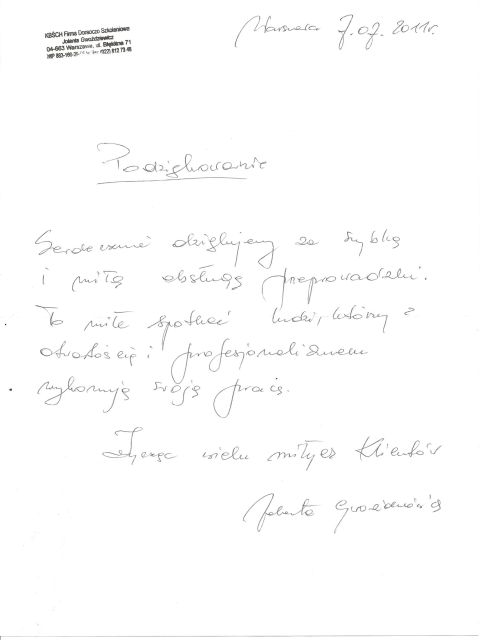 KBŚCH Firma Doradczo Szkoleniowa
Jolanta Gwoździewicz
04-663 Warszawa, ul. Błękitna 71
Warszawa 7.07.2011r.
Podziękowanie
Serdecznie dziękujemy za szybką
i miłą obsługę przeprowadzki.
To miłe spotkać ludzi, którzy z
otwartością i profesjonalizmem
wykonują swoją pracę.
Życząc wielu miłych Klientów
Jolanta